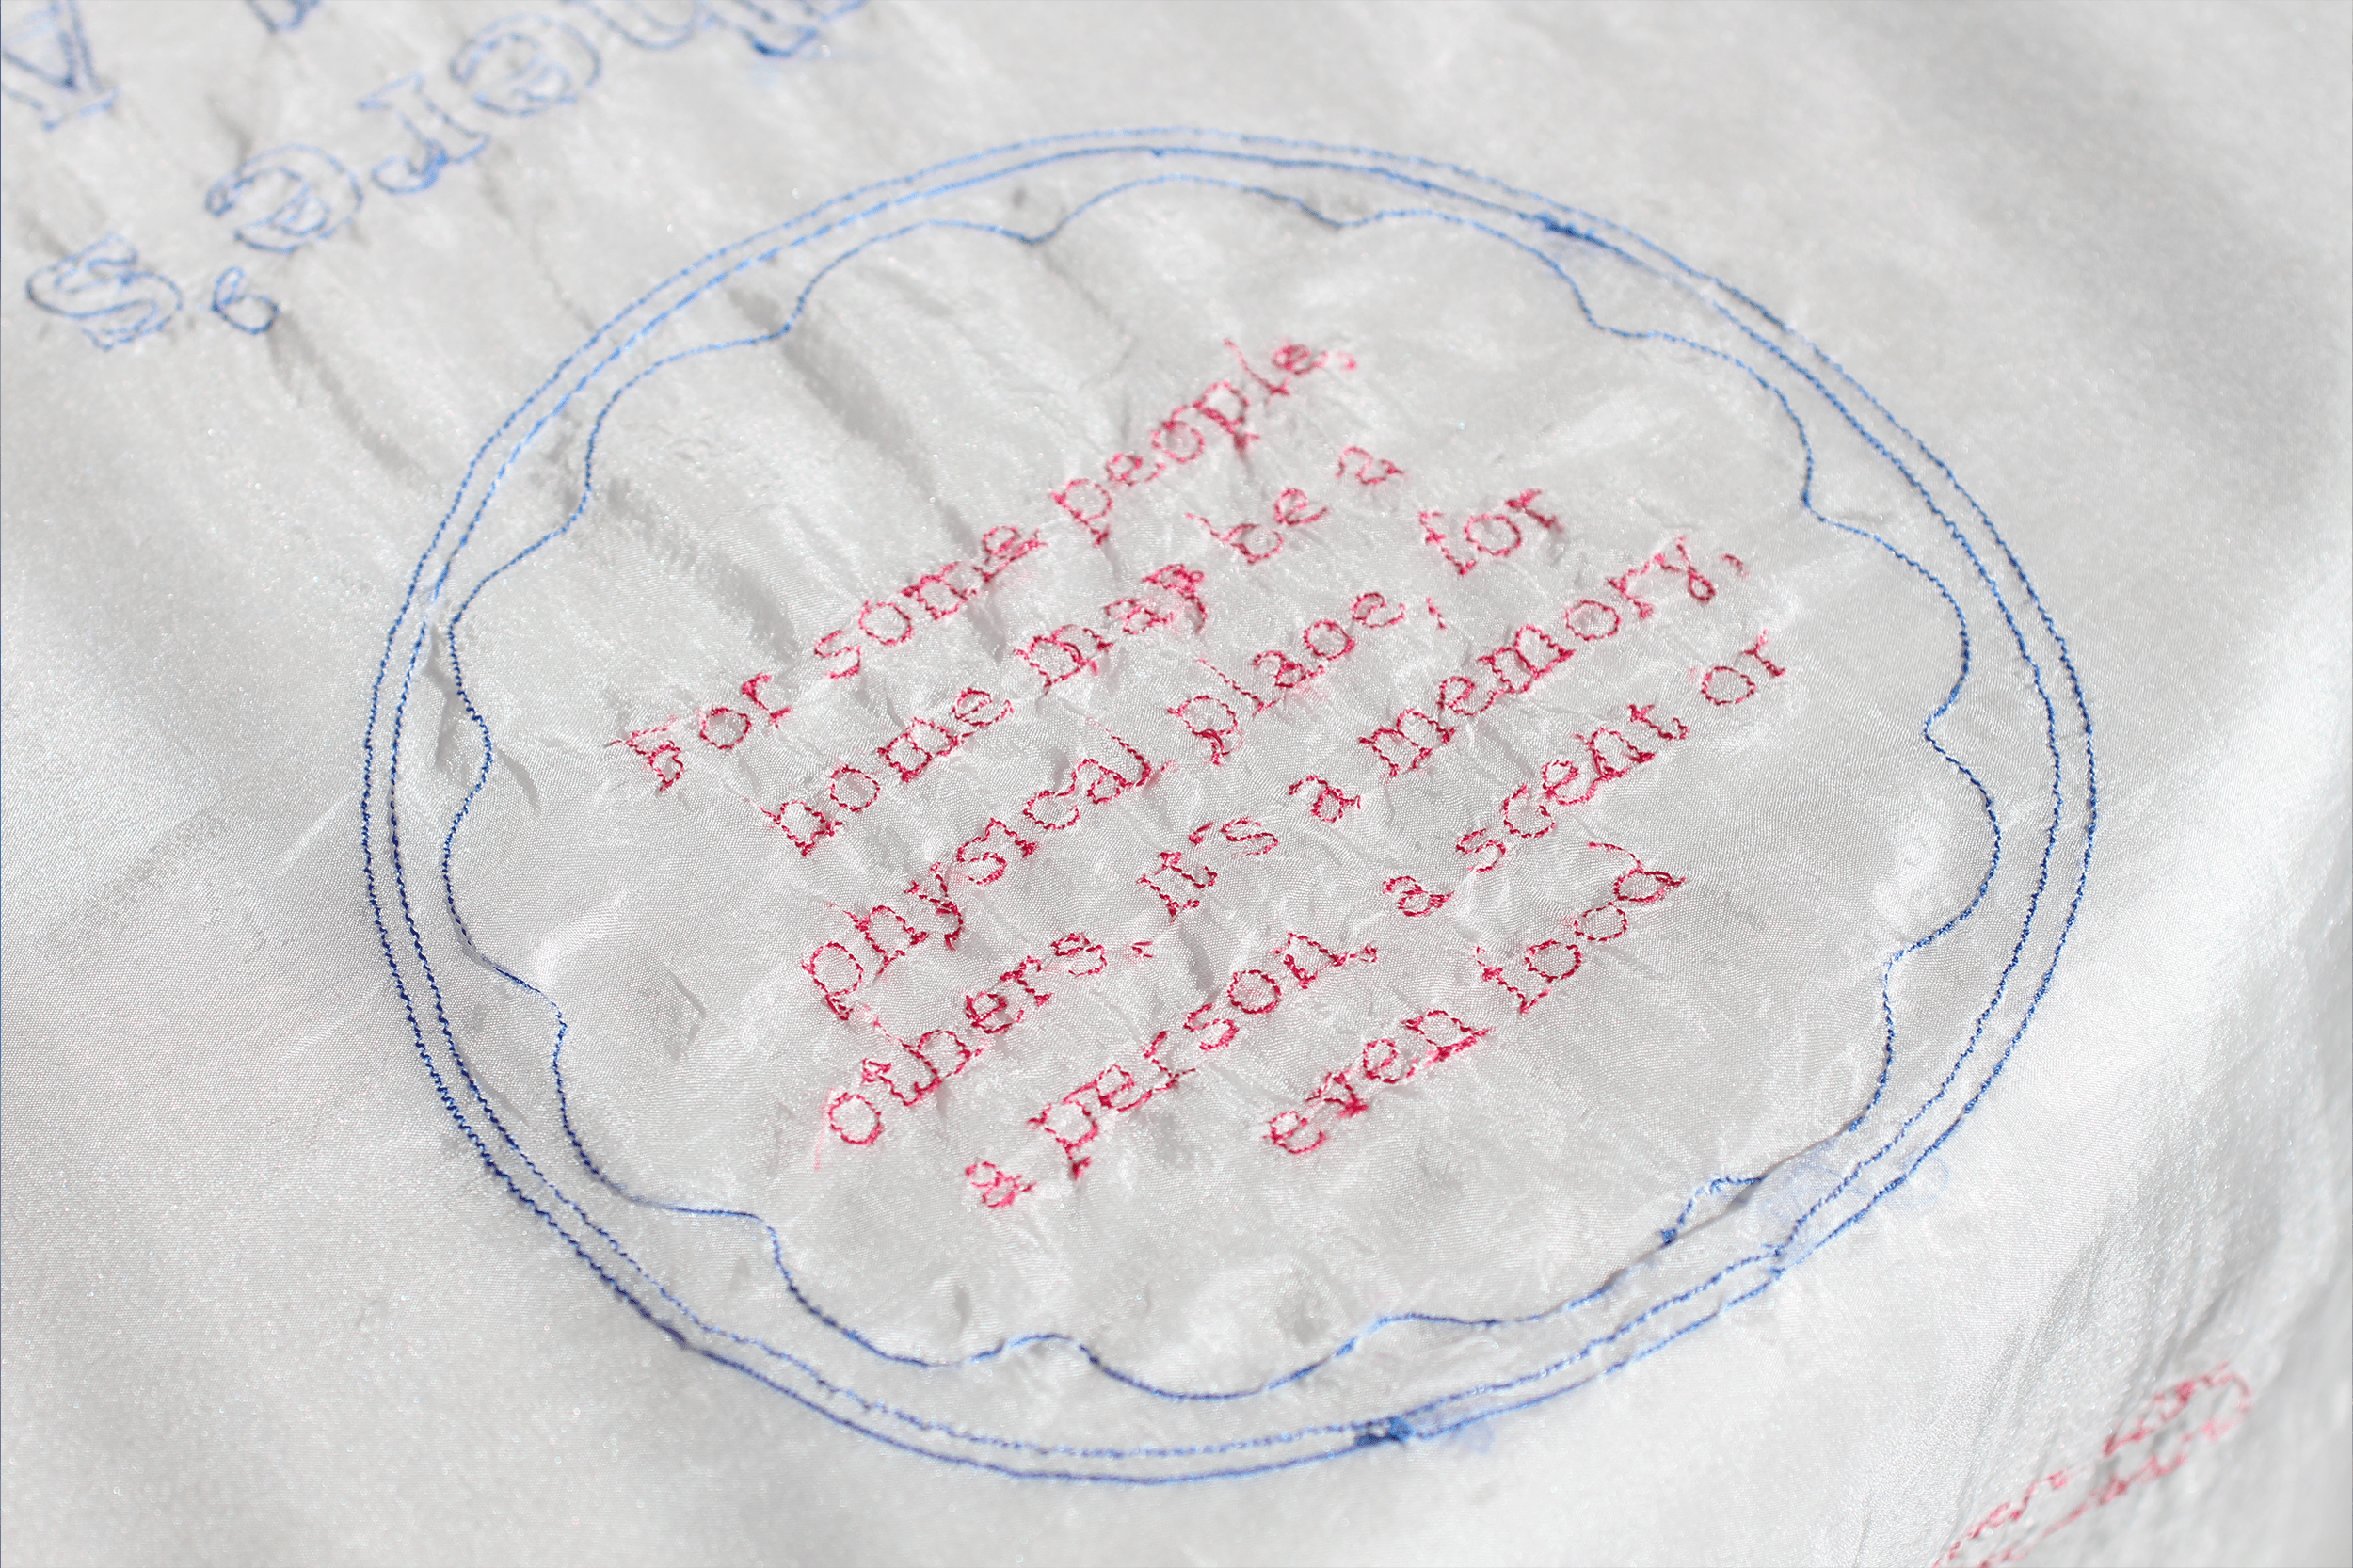 For some people,
home may be a
physical place, for
others, it's a memory,
a person, a scent or
even food